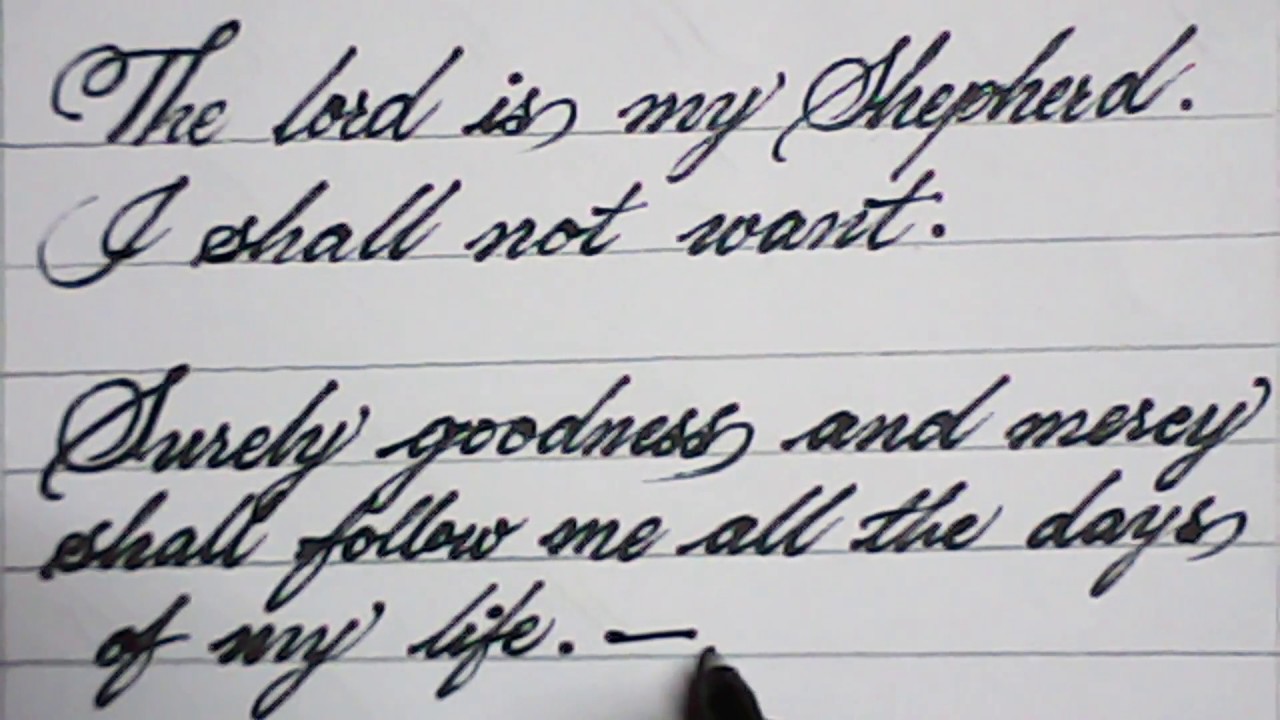 The lord is my Shepherd.
I shall not want.
Surely goodness and mercy
shall follow me all the days
of my life. —